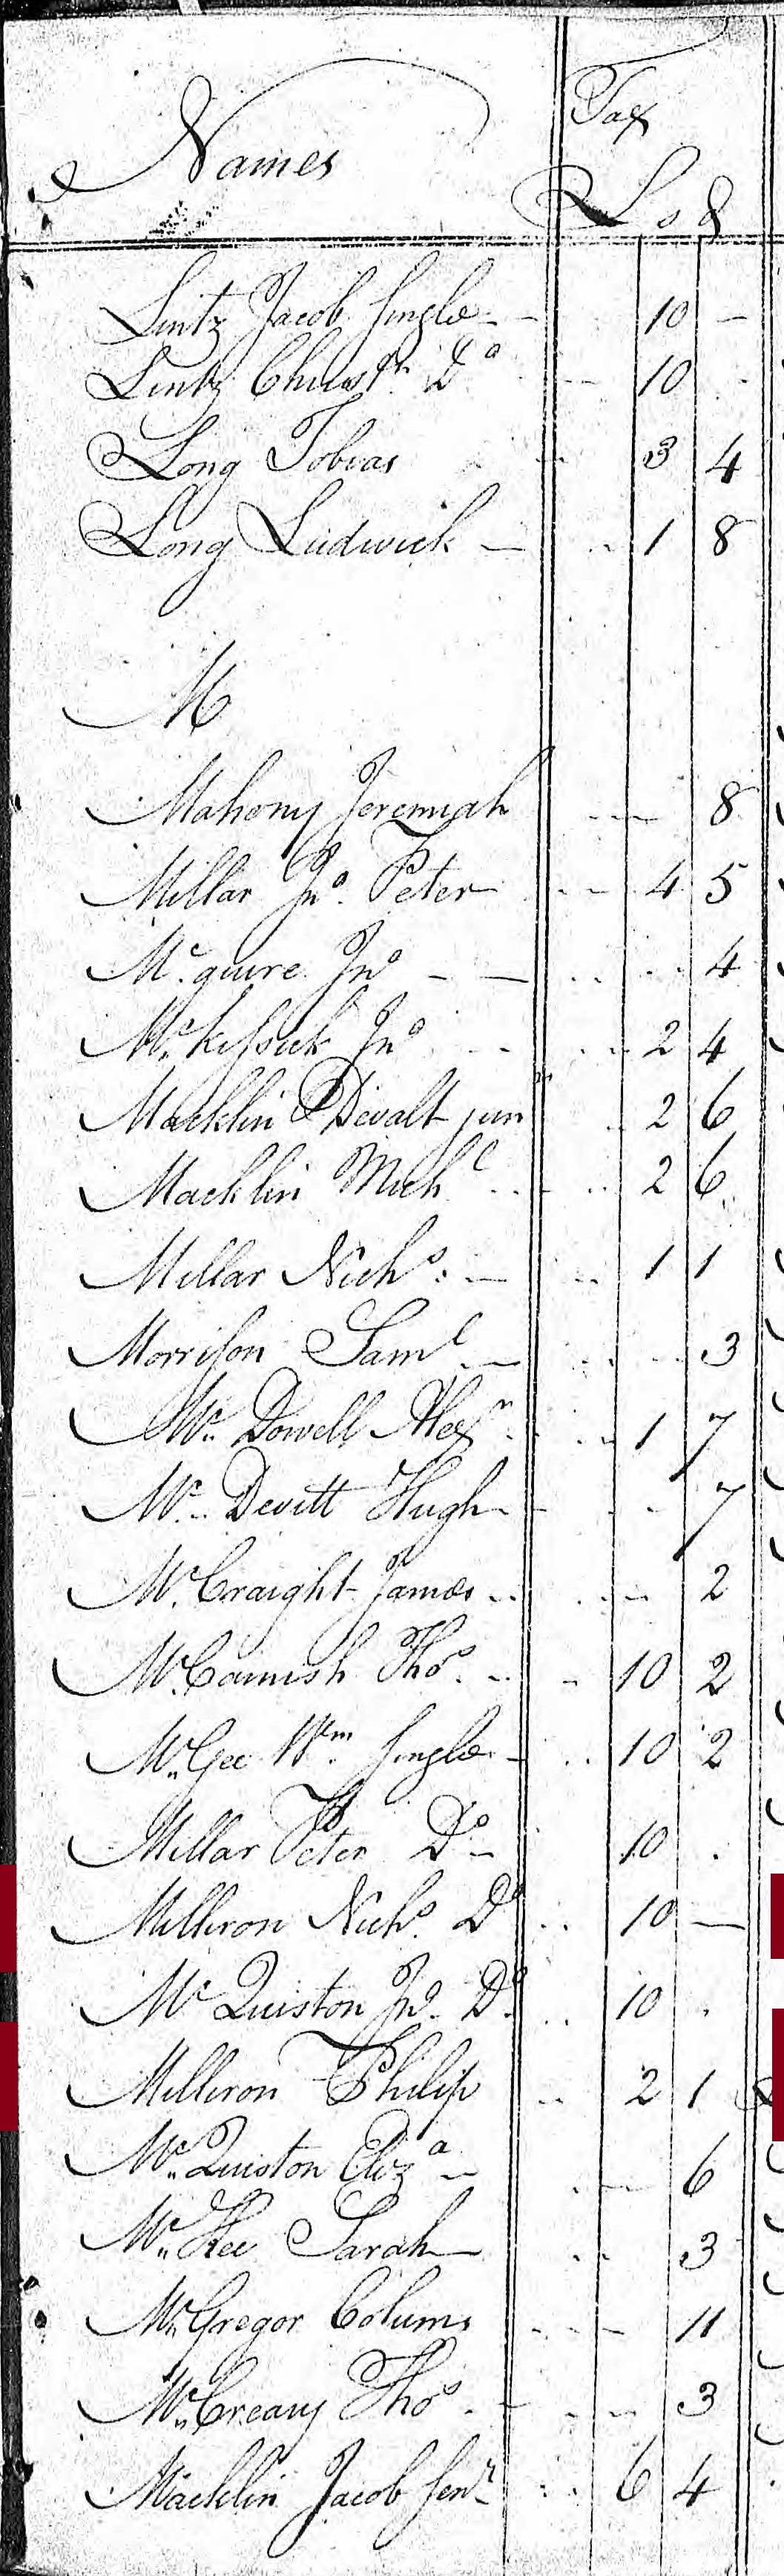 Names Tax
L s d
Lintz Jacob Single - - 10 -
Lintz Christr Do -- 10 -
Long Tobias -- 3 4
Long Ludwick - -- 1 8
M
Mahony Jeremiah --- 8
Millar Jno. Peter -- 4 5
Mc.guire Jno - - -- -- 4
McKissick Jno -- 2 4
Macklin Devalt junr - 2 6
Macklin Michl -- -- 2 6
Millar Nichs. - -- 1 1
Morrison Saml - -- - 3
Mc Dowell Alexr. -- 1 7
Mc Devitt Hugh - - 7
McCraight James -- --- 2
McCamish Thos. -- - 10 2
McGee Wm Single - -- 10 2
Millar Peter Do - 10 -
Milliron Nichs. Do -- 10 -
Mc Quiston Jno. Do -- 10 -
Milliron Philip -- 2 1
Mc Quiston Eliza - --- 6
Mc Kee Sarah - -- 3
McGregor Colums --- 11
McCreary Thos. - --- 3
Macklin Jacob Senr -- 6 4